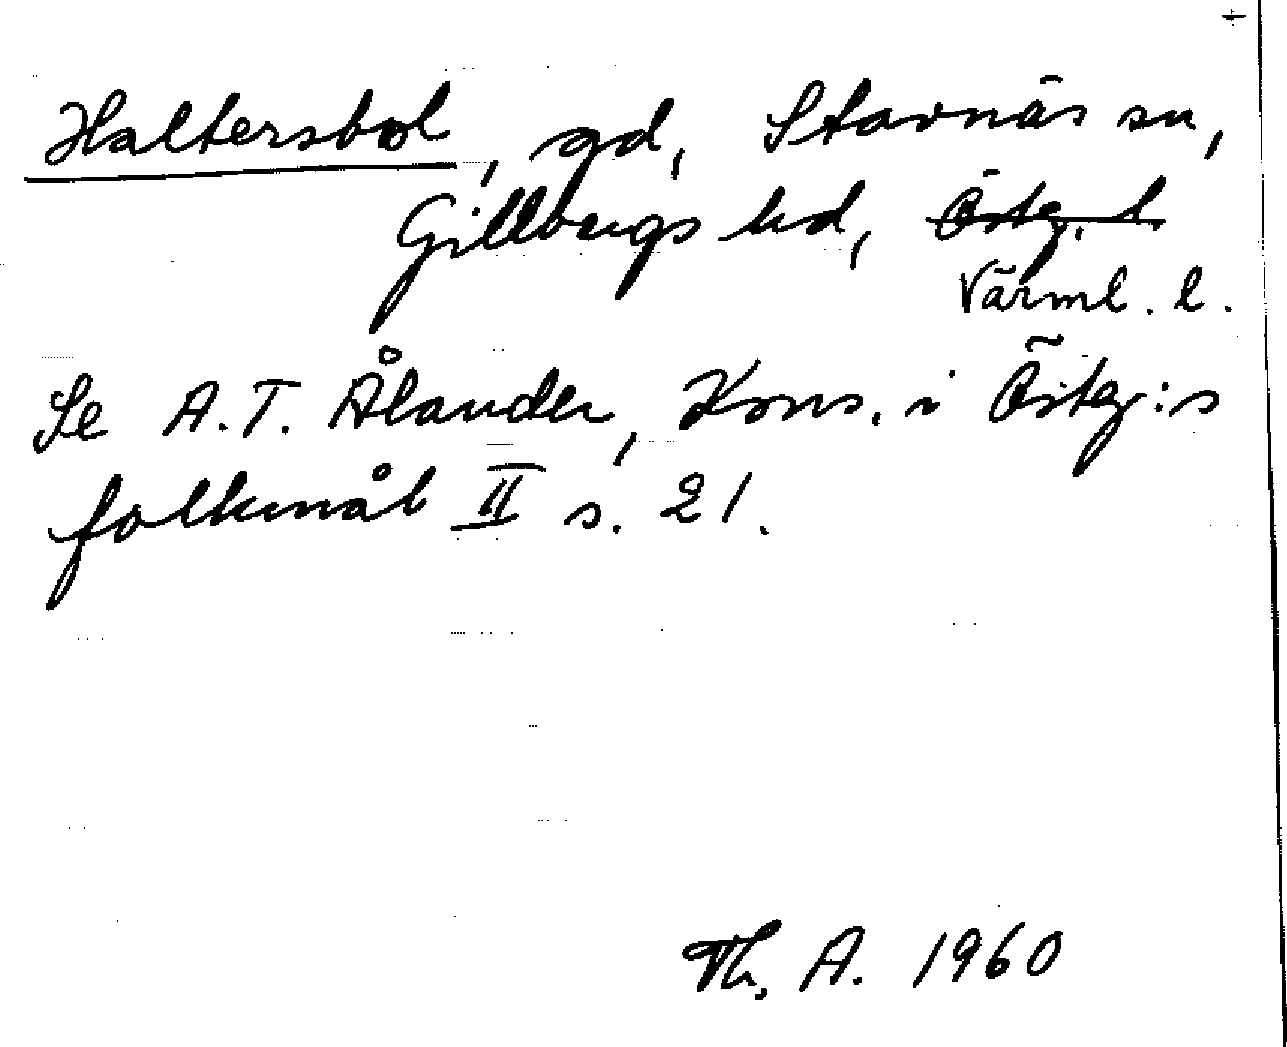 Haltersbol, gd, Stavnäs sn,
Gillbergs hd, Östg. l
Värml. l.
Se A.T. Ålander, Kons. i Östg:s
folkmål II s. 21.
Th. A. 1960